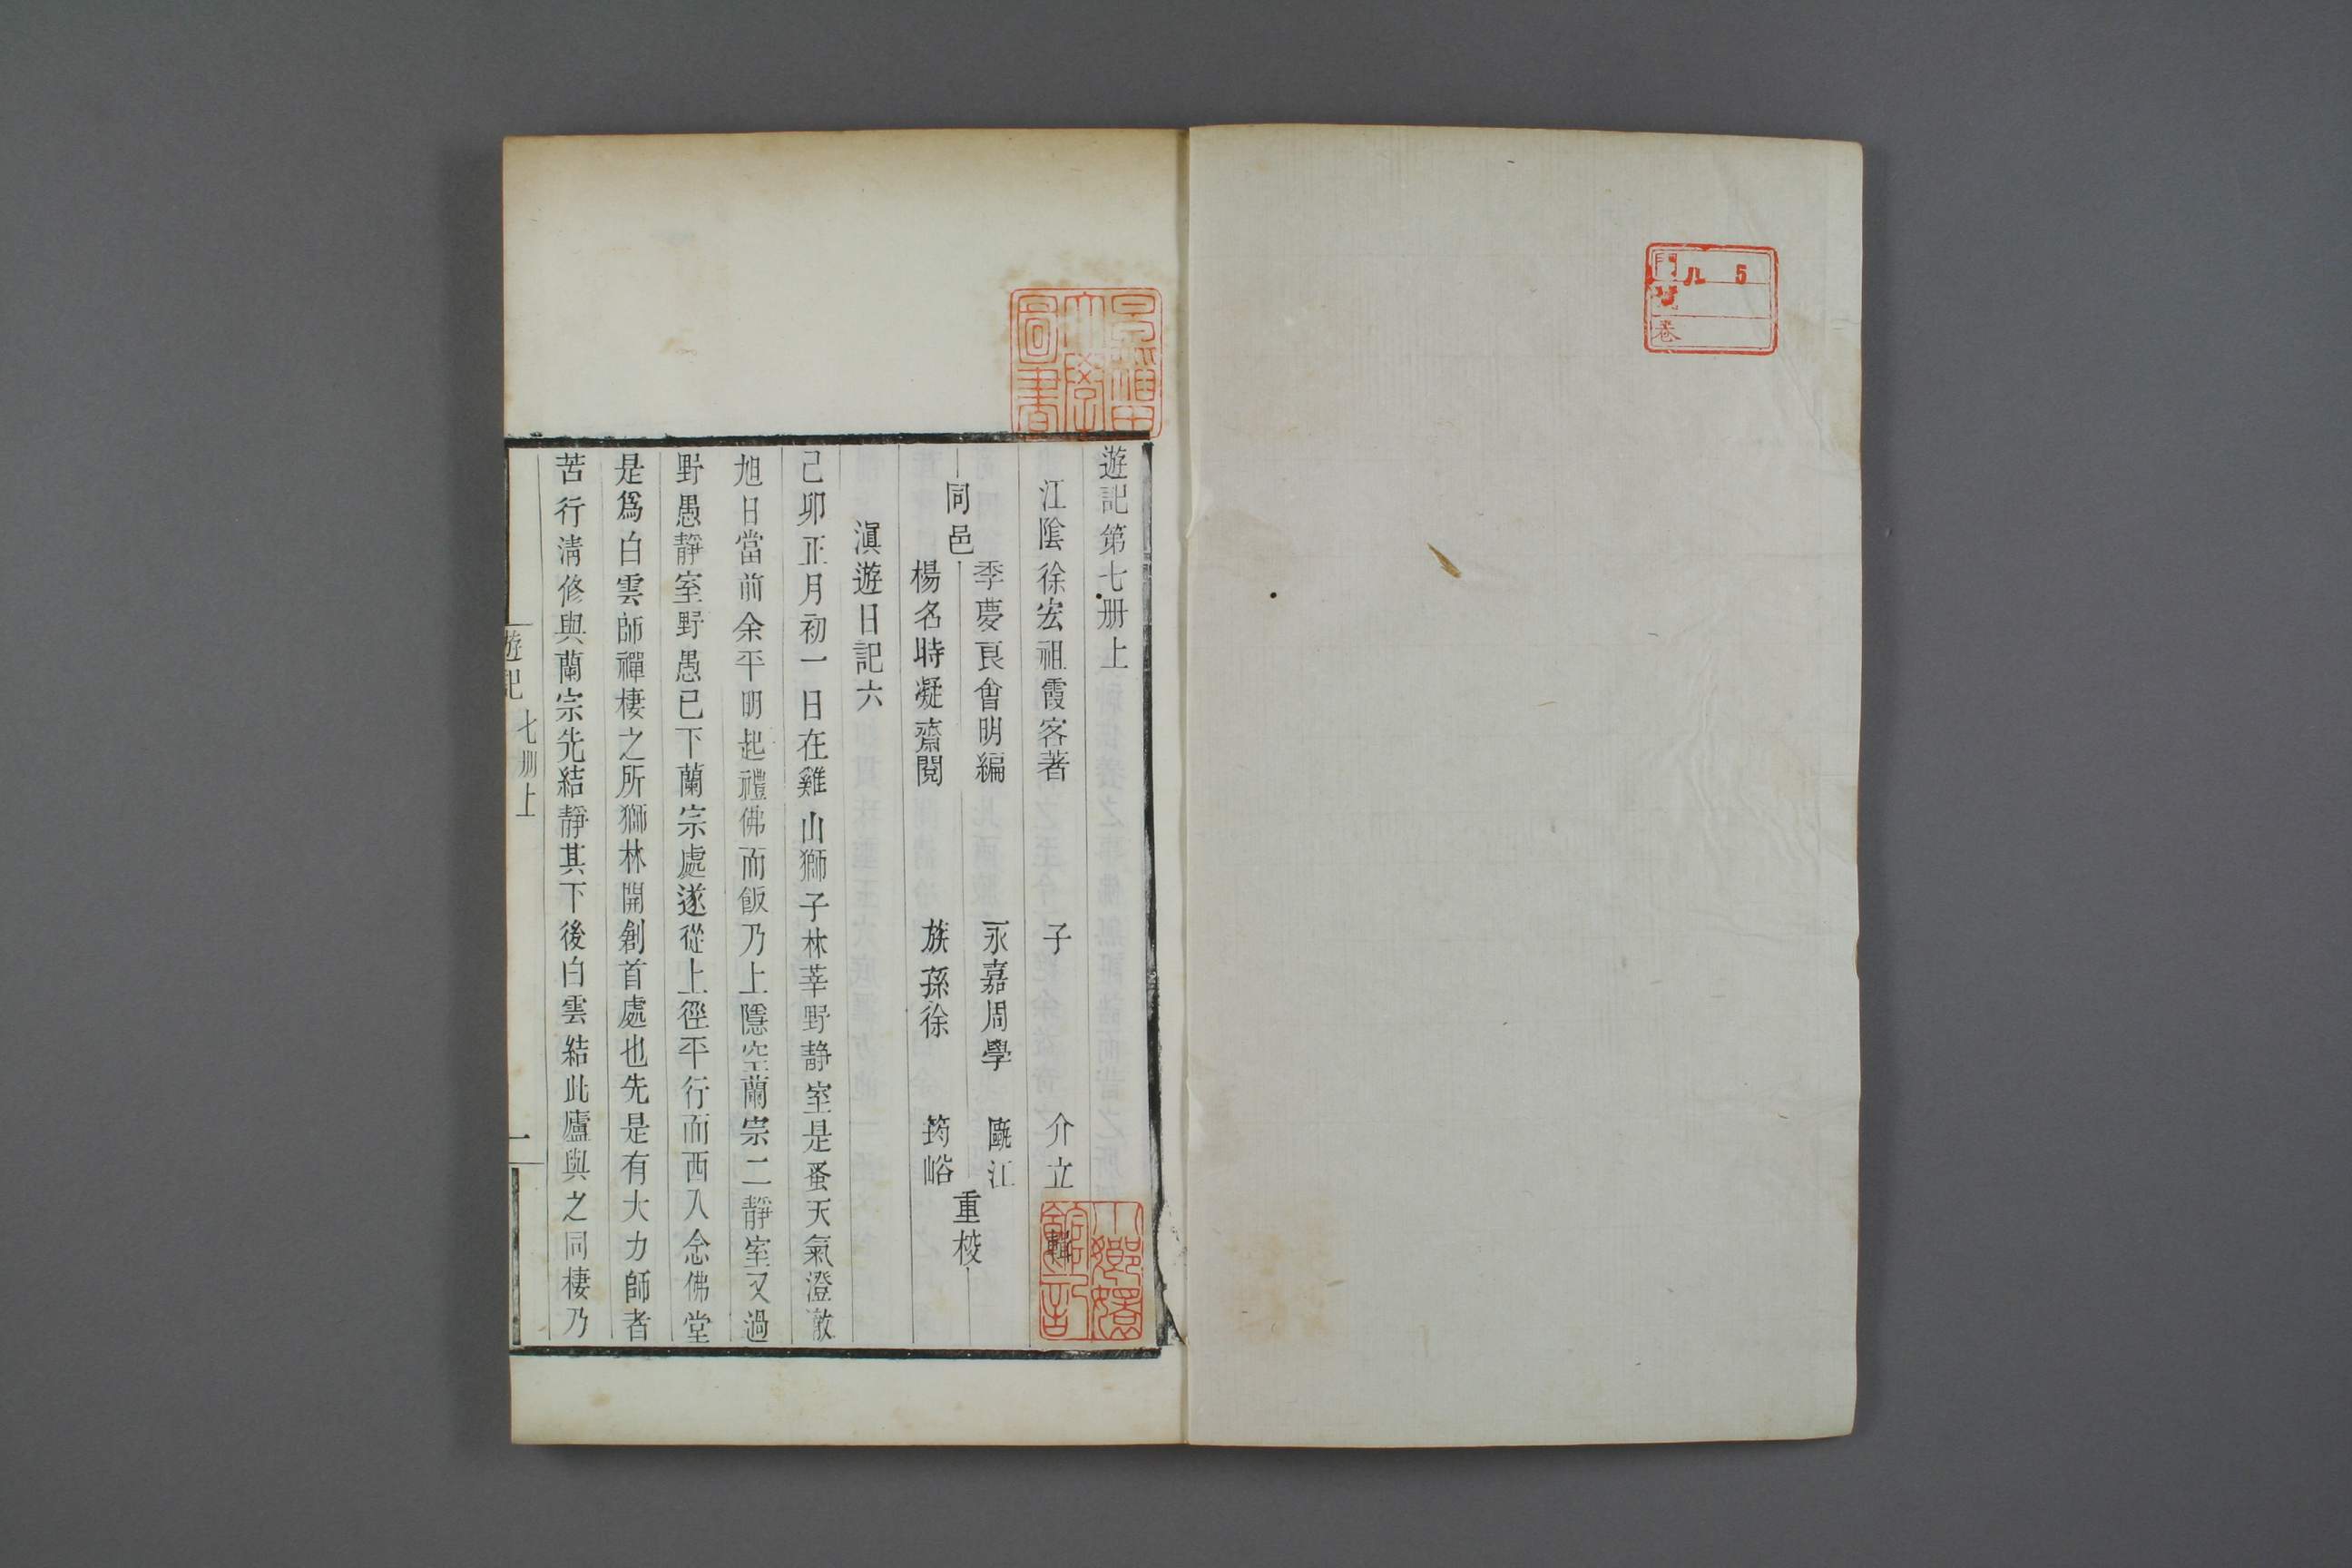 門 八 5
號
卷
早稻田
大學
圖書
遊記第七册上
江陰徐宏祖霞客著 子 介立 輯
同邑 季慶良會明編 永嘉周學 甌江
楊名時凝齋閱 族孫徐 筠峪 重校
滇遊日記六
己卯正月初一日在雞山獅子林莘野静室是蚤天氣澄澈
旭日當前余平明起禮佛而飯乃上隱空蘭宗二靜室又過
野愚靜室野愚已下蘭宗處遂從上徑平行而西入念佛堂
是爲白雲師禪棲之所獅林開創首處也先是有大力師者
苦行清修與蘭宗先結靜其下後白雲結此廬與之同棲乃
遊記 七册上 一